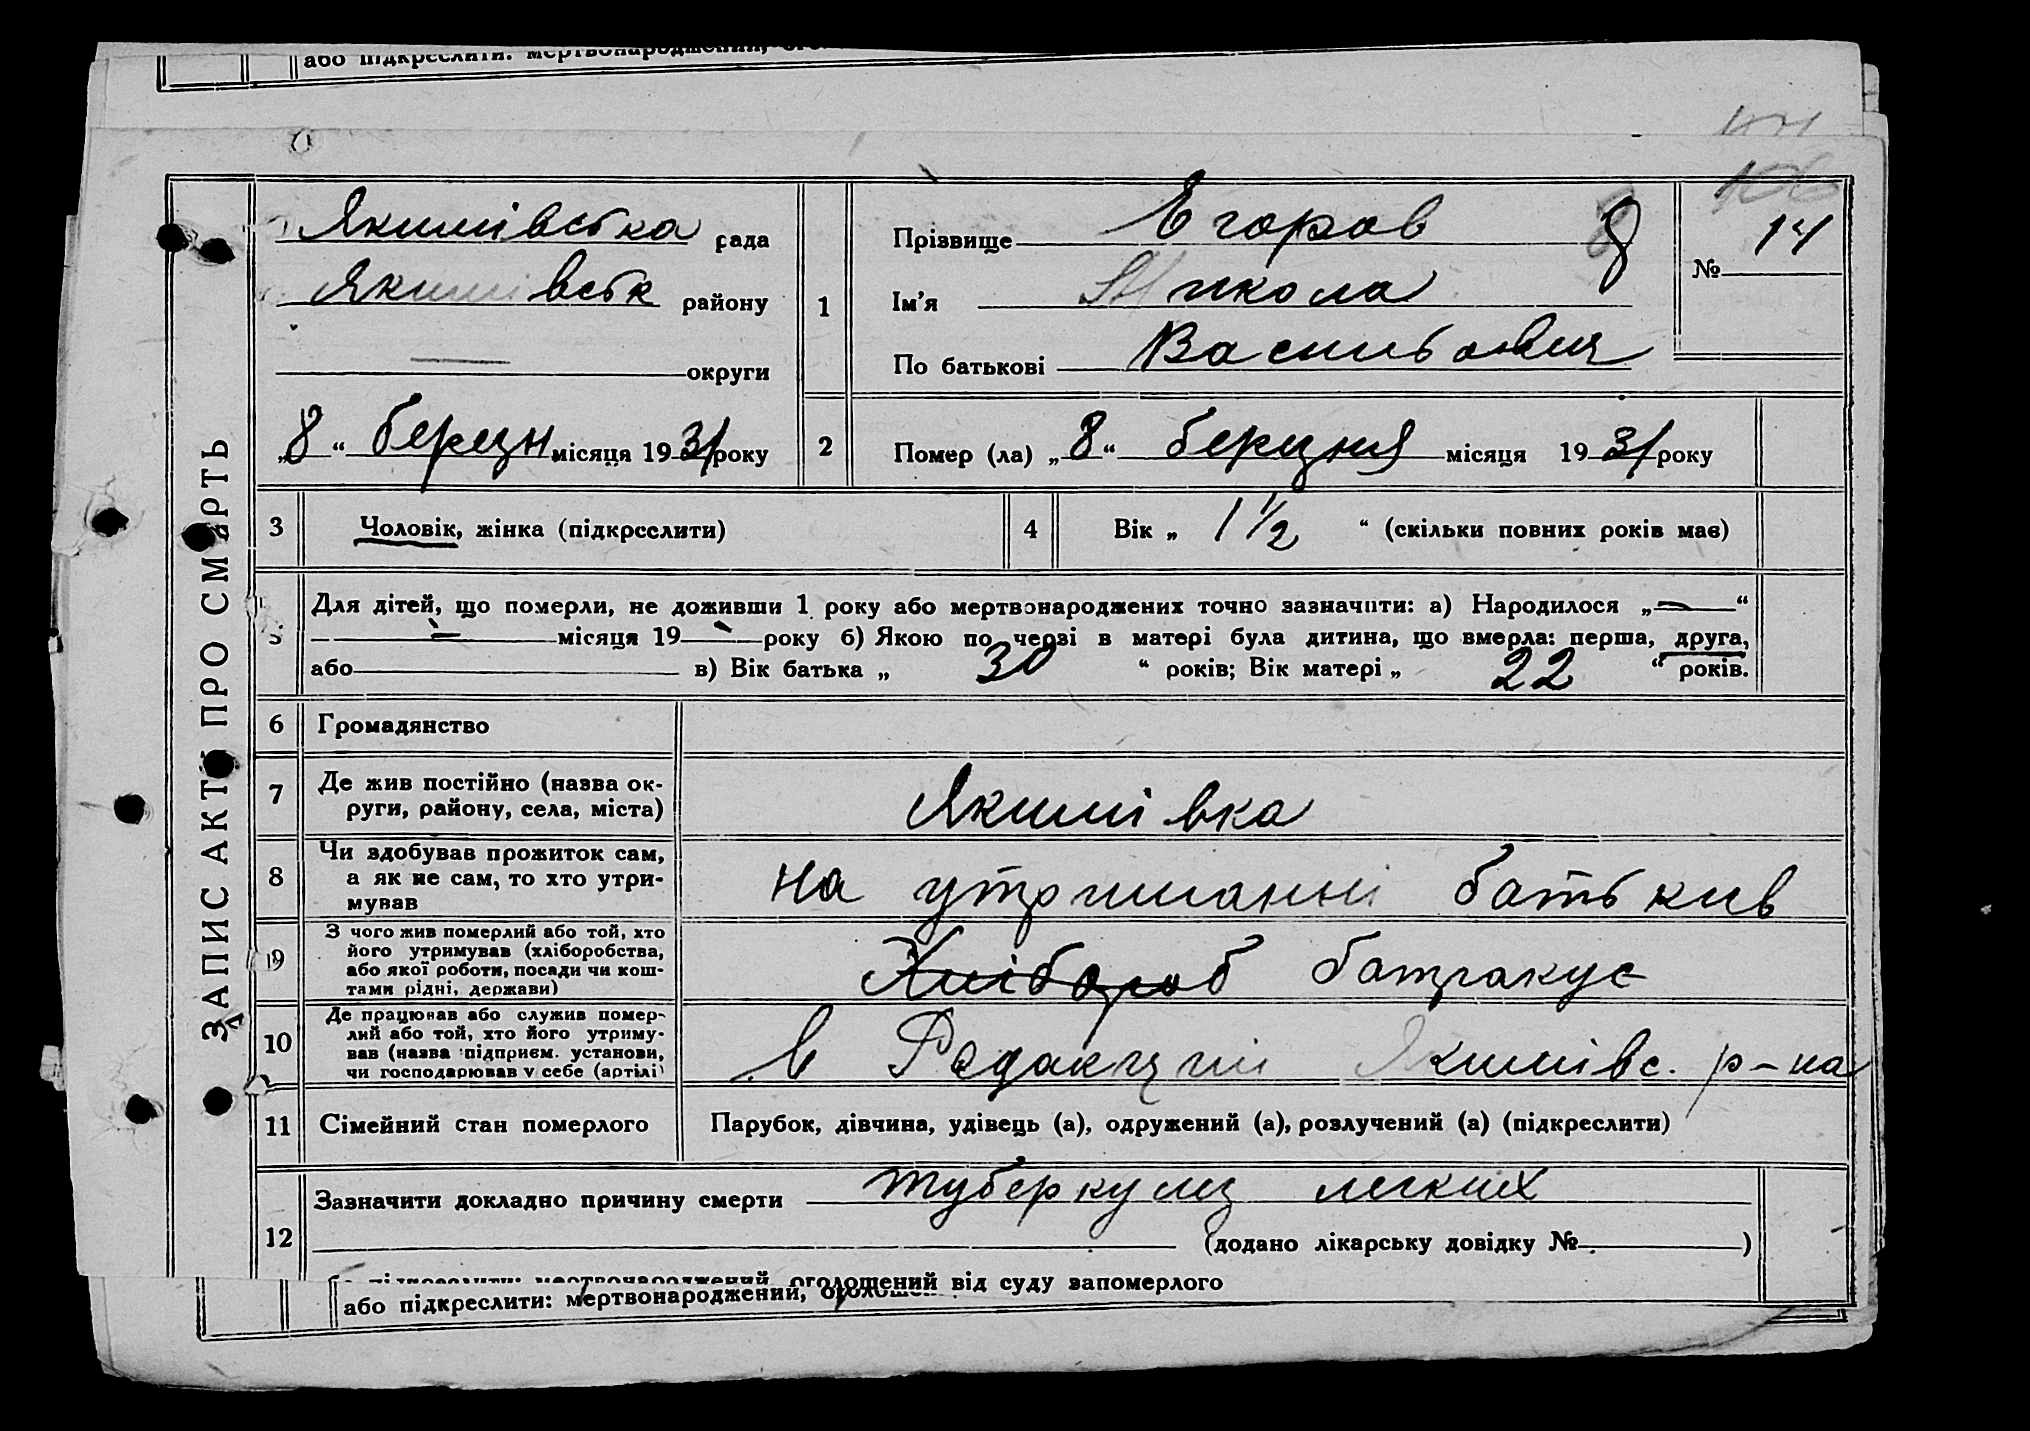 або підкреслити: мертвонароджений,
106
Якимівська рада
Якимівськ району
округи
„8“ березн місяця 1931 року
1
Прізвище Егоров
Ім’я Микола
По батькові Васильович
№ 14
2
Помер (ла) „8“ березня місяця 1931 року
ЗАПИС АКТУ ПРО СМЕРТЬ
3 Чоловік, жінка (підкреслити)
4 Вік „ 1 1/2 “ (скільки повних років має)
5 Для дітей, що померли, не доживши 1 року або мертвонароджених точно зазначити: а) Народилося „—“
— місяця 19— року б) Якою по черзі в матері була дитина, що вмерла: перша, друга,
або в) Вік батька „ 30 “ років; Вік матері „ 22 “ років.
6 Громадянство
7 Де жив постійно (назва ок-
руги, району, села, міста)
Якимівка
8 Чи здобував прожиток сам,
а як не сам, то хто утри-
мував
на утриманні батькив
9 З чого жив померлий або той, хто
його утримував (хліборобства,
або якої роботи, посади чи кош-
тами рідні, держави)
Хлібороб батракує
10 Де працював або служив помер-
лий або той, хто його утриму-
вав (назва підприєм. установи,
чи господарював у себе (артілі)
в Редакции Якимівс. р-на
11 Сімейний стан померлого
Парубок, дівчина, удівець (а), одружений (а), розлучений (а) (підкреслити)
12 Зазначити докладно причину смерти туберкулиз легких
(додано лікарську довідку № )
або підкреслити: мертвонароджений, оголошений від суду запомерлого
або підкреслити: мертвонароджений,